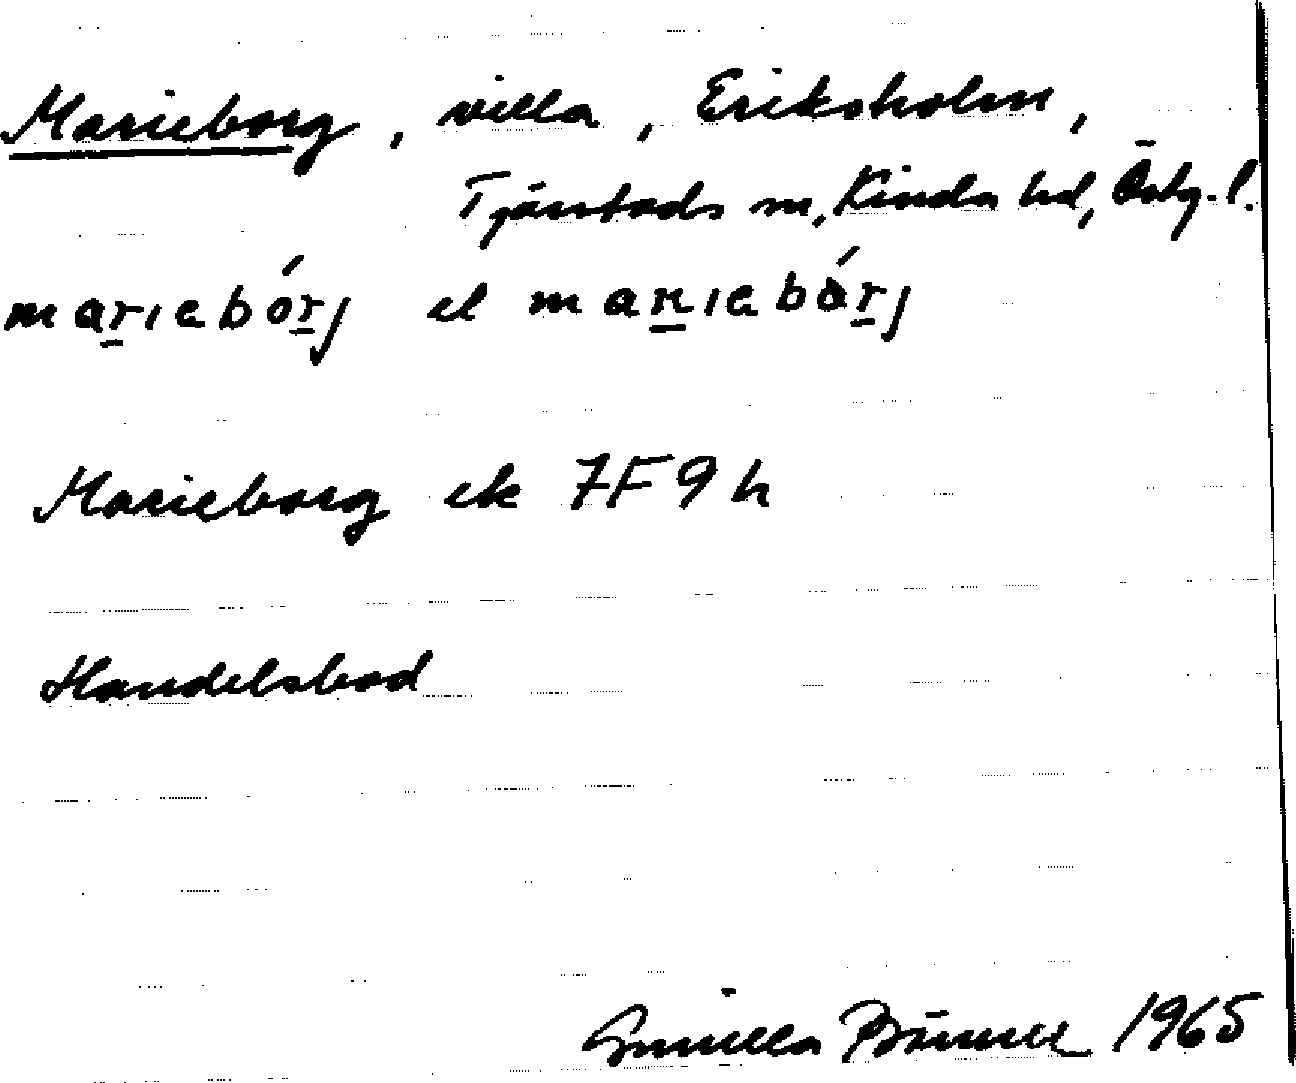 Marieborg, villa, Eriksholm,
Tjärstads sn, Kinda hd, Östg. l.
marıebórj el marıebórj
Marieborg ek 7F9h
Handelsbod
Gunilla 1965